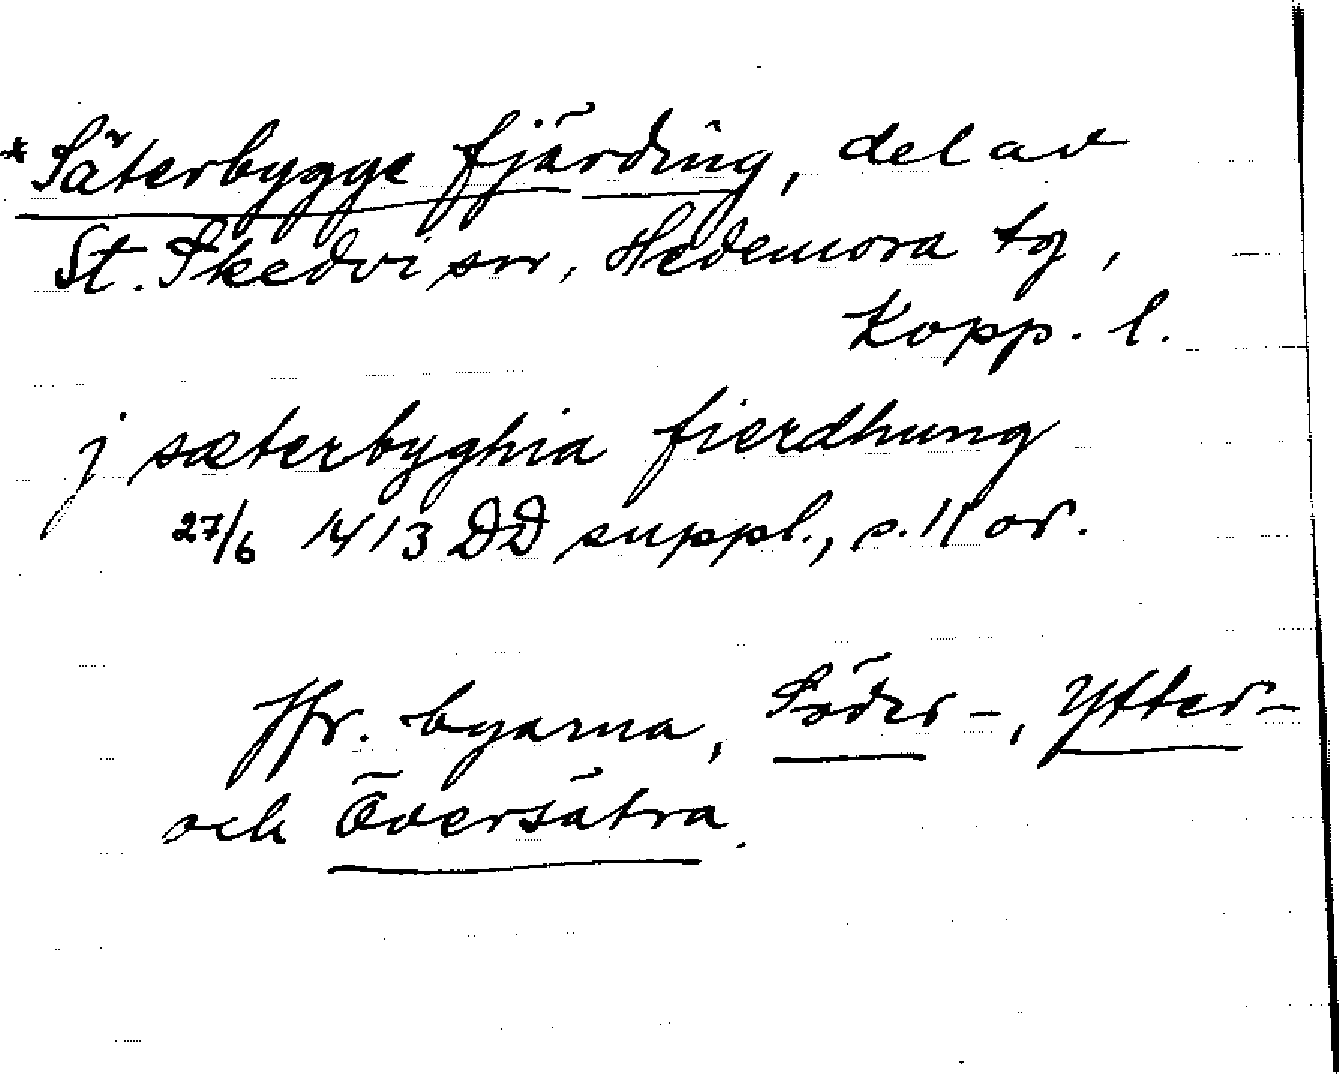 *Säterbygge fjärding, del av
St. Skedvi sn, Hedemora tg,
Kopp. l.
j sæterbyghia fierdhung
27/6 1413 DD suppl., s. 11 or.
Jfr. byarna, Söder-, Ytter-
och Översätra.